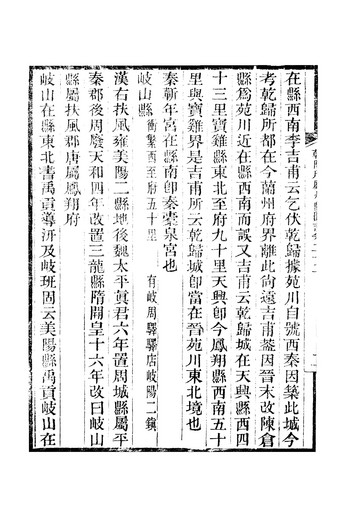 在縣西南李吉甫云乞伏乾歸據苑川自號西秦因築此城今
考乾歸所都在今蘭州府界離此尙遠吉甫葢因晉末改陳倉
縣爲苑川近在西南而誤又吉甫云乾歸城在天興縣西四
十三里寶雞縣東北至府九十里天興卽今鳳翔縣西南五十
里與寶雞界是吉甫所云乾歸城卽當在晉苑川東北境也
秦蘄年宮在縣南卽秦橐泉宮也
岐山縣 衝繁西至府五十里 有岐周驛驛店岐陽二鎭
漢右扶風雍美陽二縣地後魏太平眞君六年置周城縣屬平
秦郡後周廢天和四年改置三龍縣隋開皇十六年改曰岐山
縣屬扶風郡唐屬鳳翔府
岐山在縣東北書禹貢導汧及岐班固云美陽縣禹貢岐山在